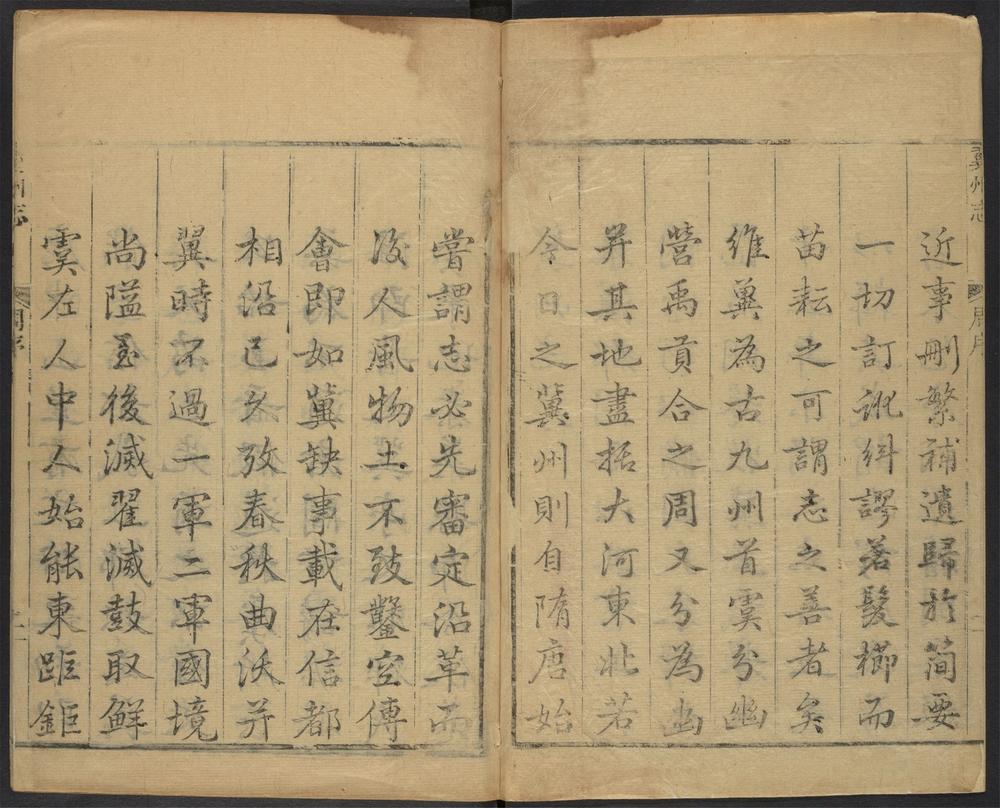 冀州志
近事刪繁補遺歸於簡要
一切訂訛糾謬若髮櫛而
苗耘之可謂志之善者矣
維冀為古九州首虞分幽
營禹貢合之周又分為幽
并其地盡括大河東北若
今日之冀州則自隋唐始
嘗謂志必先審定沿革而
後人風物土不致鑿空傅
會即如冀缺事載在信都
相沿已久攷春秋曲沃并
翼時不過一軍二軍國境
尚隘至後滅翟滅鼓取鮮
虞左人中人始能東距鉅
州志